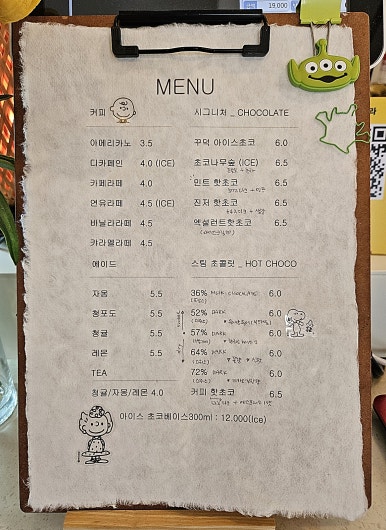 19,000
MENU
커피
아메리카노 3.5
디카페인 4.0 (ICE)
카페라떼 4.0
연유라떼 4.5 (ICE)
바닐라라떼 4.5
카라멜라떼 4.5
에이드
자몽 5.5
청포도 5.5
청귤 5.5
레몬 5.5
TEA
청귤/자몽/레몬 4.0
시그니처 _ CHOCOLATE
꾸덕 아이스초코 6.0
초코나무숲 (ICE) 6.5
민트 핫초코 6.5
진저 핫초코 6.5
엑설런트핫초코 6.5
스팀 초콜릿 _ HOT CHOCO
36% MILK CHOCOLATE 6.0
52% DARK 6.0
57% DARK 6.0
64% DARK 6.0
72% DARK 6.0
커피 핫초코 6.5
아이스 초코베이스300ml : 12,000(Ice)